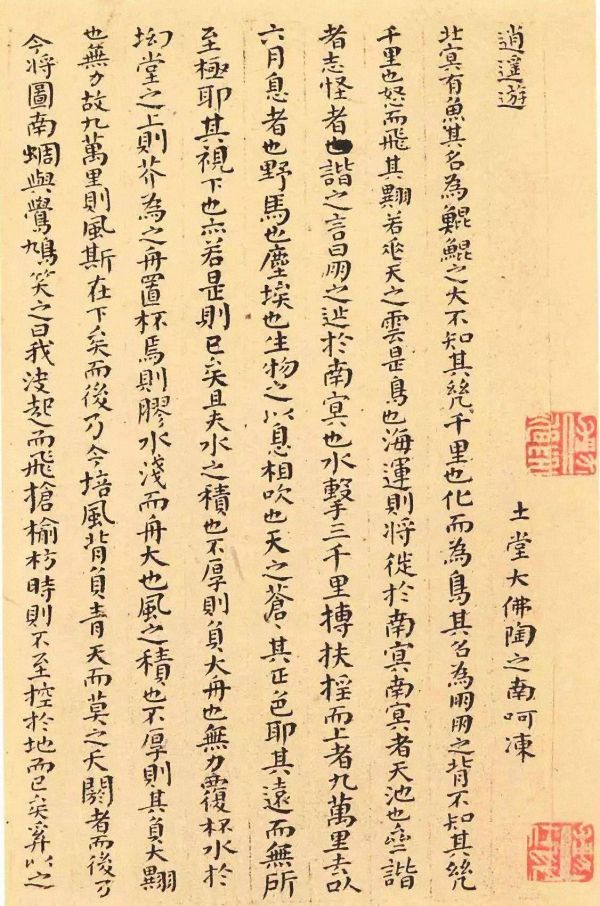 逍遥遊
土堂大佛陶之南呵凍
北冥有魚其名為鯤鯤之大不知其幾千里也化而為鳥其名為朋朋之背不知其幾
千里也怒而飛其翼若垂天之雲是鳥也海運則將徙於南冥南冥者天池也齊諧
者志怪者也諧之言曰朋之徙於南冥也水擊三千里摶扶搖而上者九萬里去以
六月息者也野馬也塵埃也生物之以息相吹也天之蒼〻其正色耶其遠而無所
至極耶其視下也亦若是則已矣且夫水之積也不厚則負大舟也無力覆杯水於
坳堂之上則芥為之舟置杯焉則膠水淺而舟大也風之積也不厚則其負大翼
也無力故九萬里則風斯在下矣而後乃今培風背負青天而莫之夭閼者而後乃
今將圖南蜩與鷽鳩笑之曰我決起而飛搶榆枋時則不至控於地而已矣奚以之